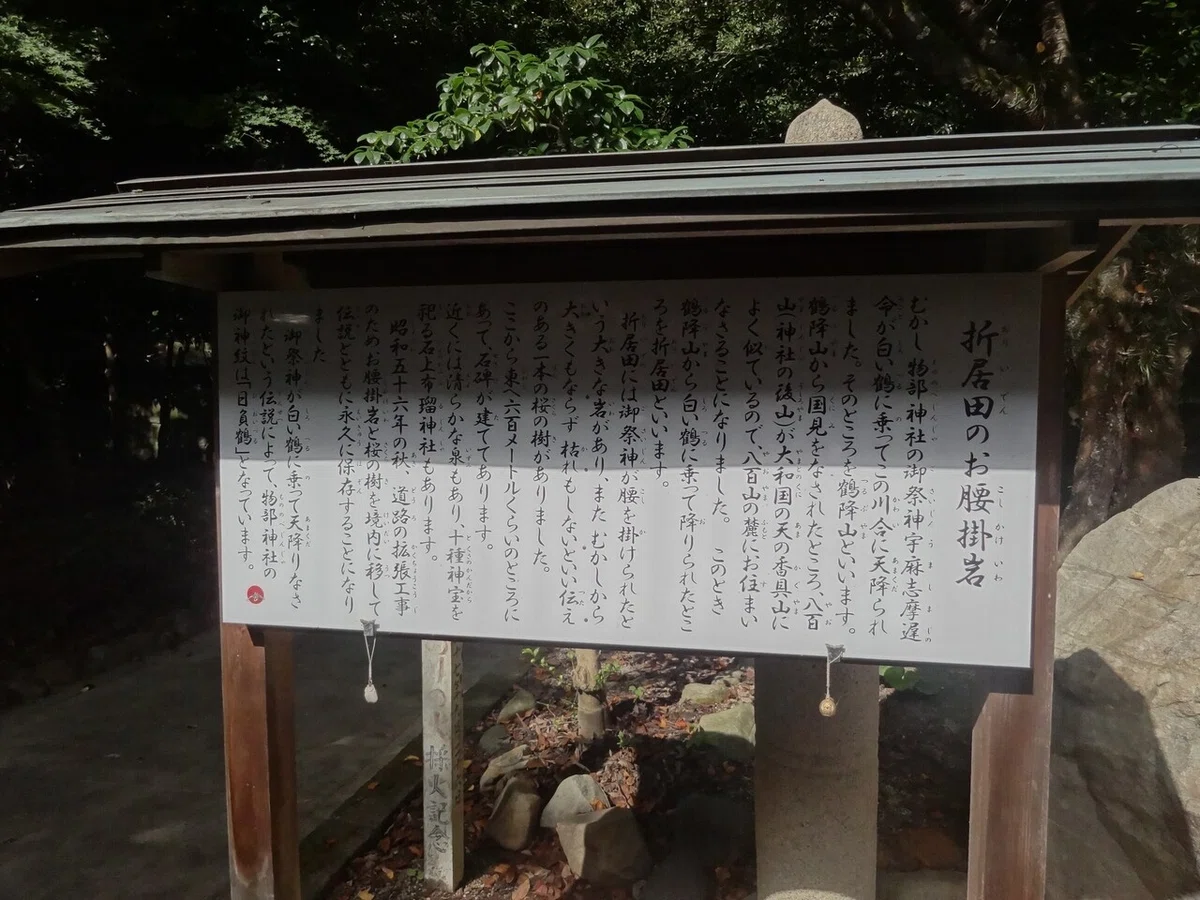 折居田のお腰掛岩
むかし 物部神社の御祭神宇麻志摩遅
命が白い鶴に乗ってこの川合に天降られ
ました。そのところを鶴降山といいます。
鶴降山から国見をなされたところ、八百
山(神社の後山)が大和国の天の香具山に
よく似ているので、八百山の麓にお住まい
なさることになりました。 このとき
鶴降山から白い鶴に乗って降りられたとこ
ろを折居田といいます。
折居田には御祭神が腰を掛けられたと
いう大きな岩があり、また むかしから
大きくもならず 枯れもしないといい伝え
のある一本の桜の樹がありました。
ここから東へ六百メートルくらいのところに
あって、石碑が建ててあります。
近くには清らかな泉もあり、十種神宝を
祀る石上布瑠神社もあります。
昭和五十六年の秋、道路の拡張工事
のためお腰掛岩と桜の樹を境内に移して
伝説とともに永久に保存することになり
ました
御祭神が白い鶴に乗って天降りなさ
れたという伝説によって、物部神社の
御神紋は「日負鶴」となっています。
採火記念